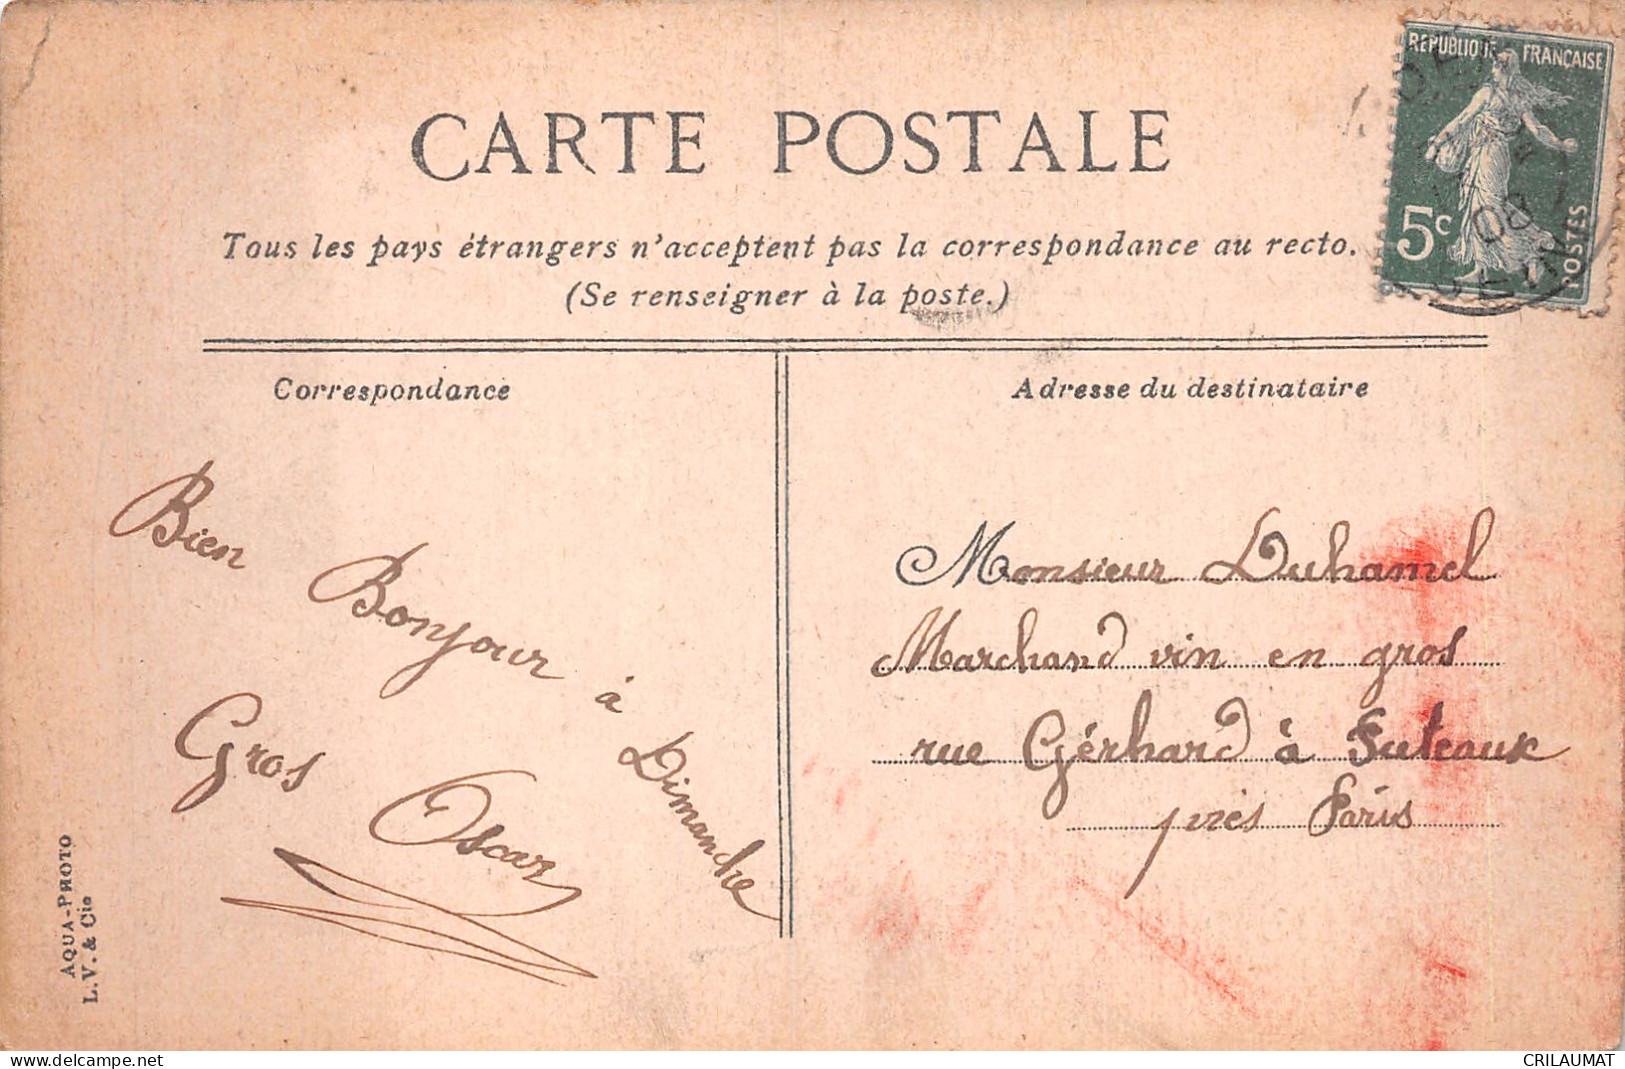 CARTE POSTALE
REPUBLIQUE FRANÇAISE
5c
POSTES
08
Tous les pays étrangers n'acceptent pas la correspondance au recto.
(Se renseigner à la poste.)
Correspondance
Adresse du destinataire
Bien Bonjour à Dimanche
Gros Oscar
Monsieur Duhamel
Marchand vin en gros
rue Gérhard à Puteaux
près Paris
AQUA-PHOTO
L. V. & Cie
delcampe.net
CRILAUMAT